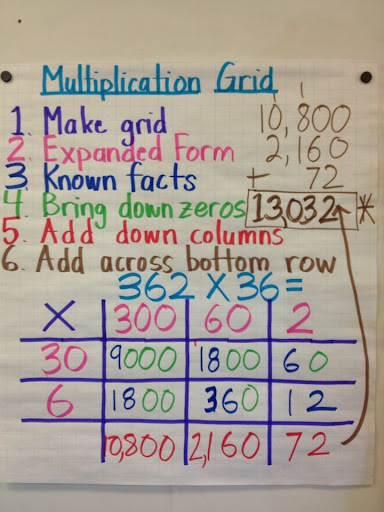 Multiplication Grid
1. Make grid
2. Expanded Form
3. Known facts
4. Bring down zeros
5. Add down columns
6. Add across bottom row
1
10,800
2,160
+ 72
13,032 *
362 X 36 =
X 300 60 2
30 9000 1800 60
6 1800 360 12
10,800 2,160 72